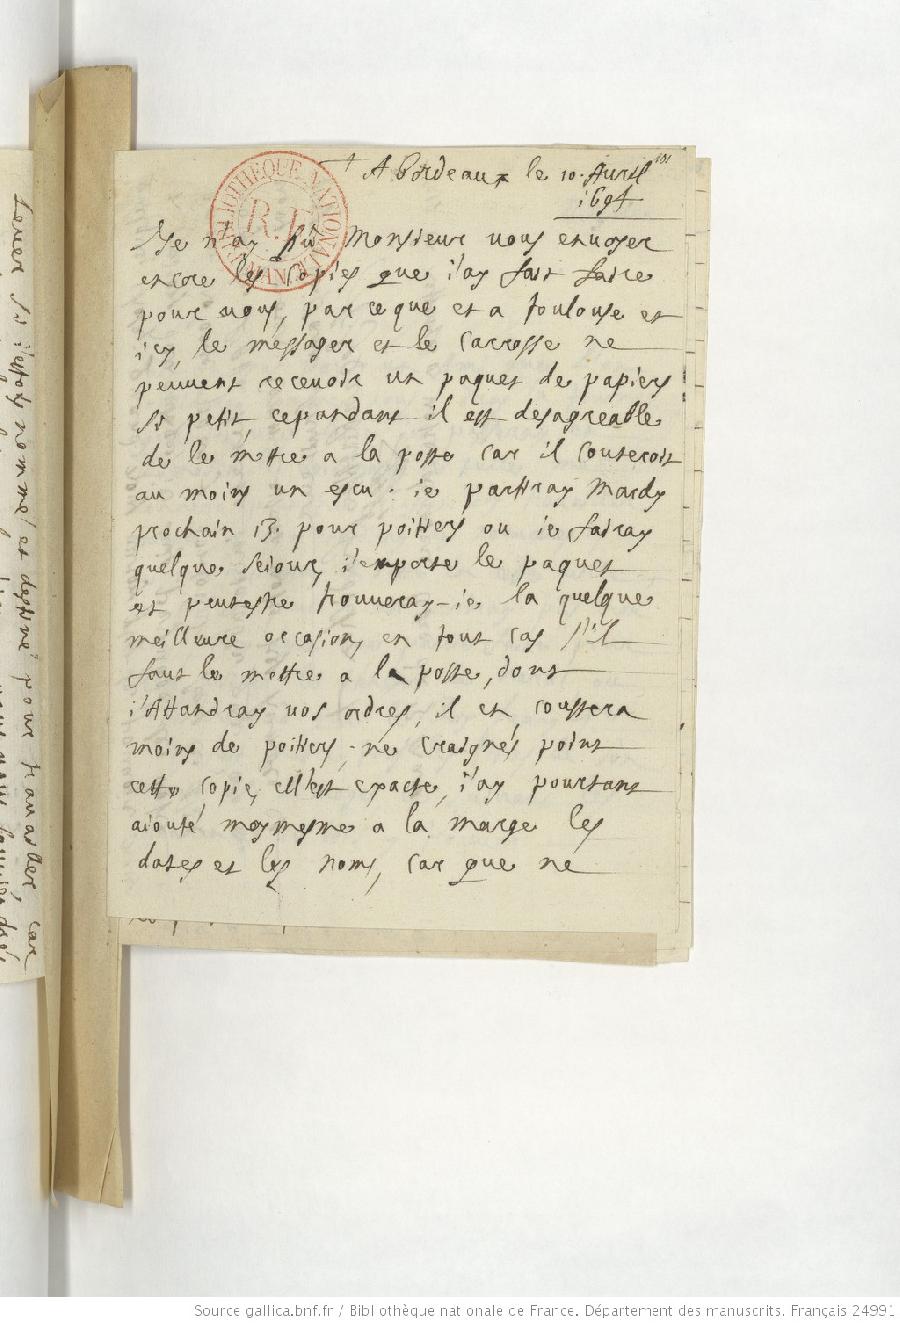 A Bordeaux le 10. Avril
1694
Je n'ay pû Monsieur vous envoyer
encore les copies que i'ay fait faire
pour vous, parce que et a toulouse et
icy, le messager et le carrosse ne
peuvent recevoir un paquet de papiers
si petit, cependant il est desagreable
de le mettre a la poste car il couteroit
au moins un escu. ie partiray Mardy
prochain 13. pour poitiers ou ie fairay
quelque seiour, i'emporte le paquet
et peutestre trouveray-ie la quelque
meilleure occasion, en tout cas s'il
faut le mettre a la poste, dont
i'attandray vos ordres, il en coustera
moins de poitiers. ne craignés point
cette copie, ell'est exacte, i'ay pourtant
aiouté moymesme a la marge les
dates et les noms, car que ne
BIBLIOTHEQUE NATIONALE
R.F.
Source gallica.bnf.fr / Bibliothèque nationale de France. Département des manuscrits. Français 24991